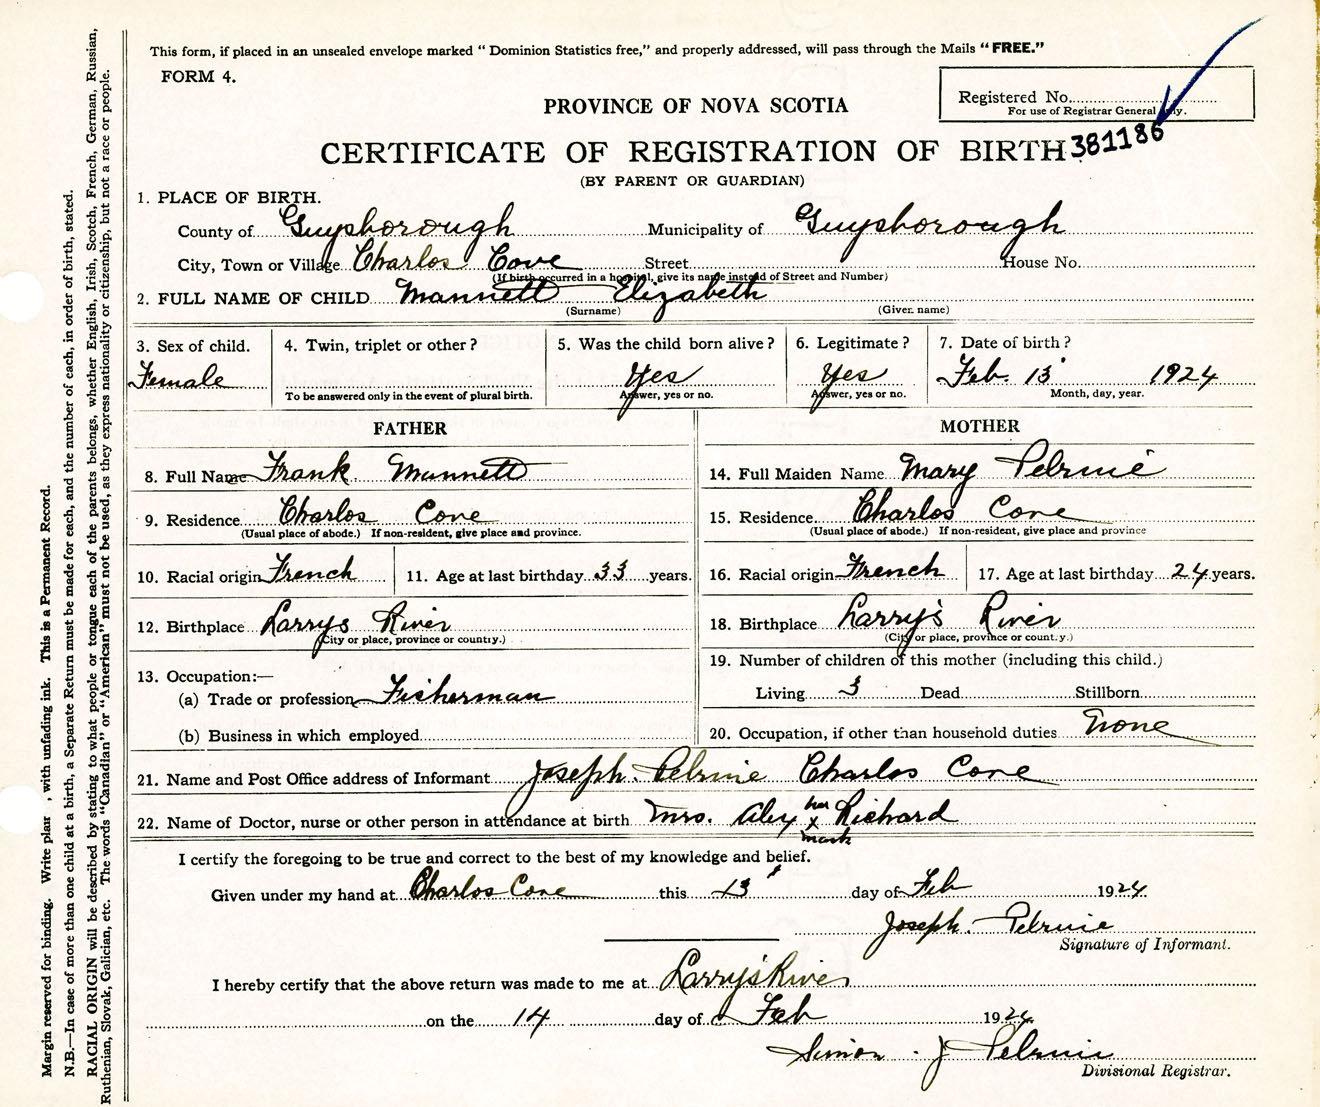 This form, if placed in an unsealed envelope marked “ Dominion Statistics free,” and properly addressed, will pass through the Mails “ FREE.”
FORM 4.
Registered No.
For use of Registrar General only.
PROVINCE OF NOVA SCOTIA
CERTIFICATE OF REGISTRATION OF BIRTH 381186
(BY PARENT OR GUARDIAN)
1. PLACE OF BIRTH.
County of Guysborough Municipality of Guysborough
City, Town or Village Charlos Cove Street House No.
(If birth occurred in a hospital, give its name instead of Street and Number)
2. FULL NAME OF CHILD Mannett Elizabeth
(Surname) (Given name)
3. Sex of child. 4. Twin, triplet or other? 5. Was the child born alive? 6. Legitimate? 7. Date of birth?
Female Yes Yes Feb. 13 1924
To be answered only in the event of plural birth. Answer, yes or no. Answer, yes or no. Month, day, year.
FATHER
8. Full Name Frank Mannett
9. Residence Charlos Cove
(Usual place of abode.) If non-resident, give place and province.
10. Racial origin French 11. Age at last birthday 33 years.
12. Birthplace Larrys River
(City or place, province or country.)
13. Occupation:—
(a) Trade or profession Fisherman
(b) Business in which employed
MOTHER
14. Full Maiden Name Mary Pelrine
15. Residence Charlos Cove
(Usual place of abode.) If non-resident, give place and province
16. Racial origin French 17. Age at last birthday 24 years.
18. Birthplace Larry's River
(City or place, province or country.)
19. Number of children of this mother (including this child.)
Living 3 Dead Stillborn
20. Occupation, if other than household duties None
21. Name and Post Office address of Informant Joseph Pelrine Charlos Cove
22. Name of Doctor, nurse or other person in attendance at birth Mrs. her x mark Richard
I certify the foregoing to be true and correct to the best of my knowledge and belief.
Given under my hand at Charlos Cove this 13 day of Feb 1924
Joseph. Pelrine
Signature of Informant.
I hereby certify that the above return was made to me at Larry's River
on the 14 day of Feb 1924
Simon J Pelrine
Divisional Registrar.
Margin reserved for binding. Write plain, with unfading ink. This is a Permanent Record.
N.B.—In case of more than one child at a birth, a Separate Return must be made for each, and the number of each, in order of birth, stated.
RACIAL ORIGIN will be described by stating to what people or tongue each of the parents belongs, whether English, Irish, Scotch, French, German, Russian,
Ruthenian, Slovak, Galician, etc. The words “Canadian” or “American” must not be used, as they express nationality or citizenship, but not a race or people.